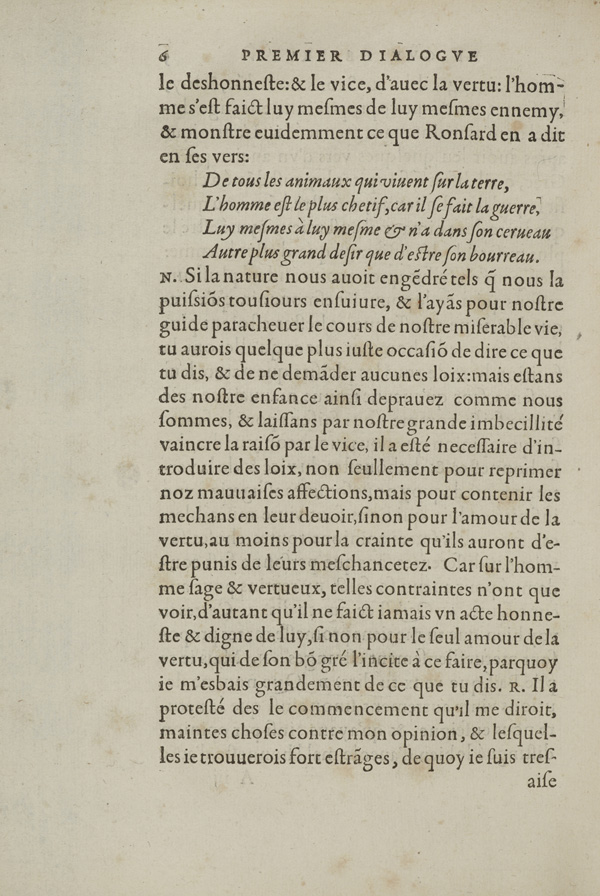 6 PREMIER DIALOGVE
le deshonneſte:& le vice, d'auec la vertu: l'hom-
me s'eſt faict luy meſmes de luy meſmes ennemy,
& monſtre euidemment ce que Ronſard en a dit
en ſes vers:
De tous les animaux qui viuent ſur la terre,
L'homme eſt le plus chetif, car il ſe fait la guerre,
Luy meſmes à luy meſme & n'a dans ſon cerueau
Autre plus grand deſir que d'eſtre ſon bourreau.
N. Si la nature nous auoit engēdré tels q̃ nous la
puiſſiōs touſiours enſuiure, & l'ayãs pour noſtre
guide paracheuer le cours de noſtre miſerable vie,
tu aurois quelque plus iuſte occaſiō de dire ce que
tu dis, & de ne demãder aucunes loix:mais eſtans
des noſtre enfance ainſi deprauez comme nous
ſommes, & laiſſans par noſtre grande imbecillité
vaincre la raiſō par le vice, il a eſté neceſſaire d'in-
troduire des loix, non ſeullement pour reprimer
noz mauuaiſes affections,mais pour contenir les
mechans en leur deuoir,ſinon pour l'amour de la
vertu,au moins pour la crainte qu'ils auront d'e-
ſtre punis de leurs meſchancetez. Car ſur l'hom-
me ſage & vertueux, telles contraintes n'ont que
voir,d'autant qu'il ne faict iamais vn acte honne-
ſte & digne de luy,ſi non pour le ſeul amour de la
vertu,qui de ſon bō gré l'incite à ce faire,parquoy
ie m'esbais grandement de ce que tu dis. R. Il a
proteſté des le commencement qu'il me diroit,
maintes choſes contre mon opinion, & leſquel-
les ie trouuerois fort eſtrãges, de quoy ie ſuis treſ-
aiſe